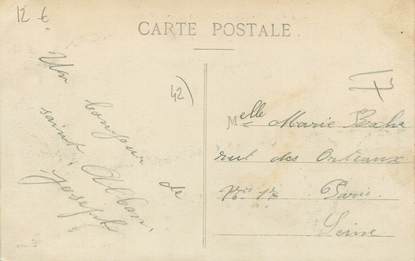 12 €
CARTE POSTALE
Un bonjour de
saint Alban.
Joseph
42)
Melle Marie
des Orteaux
Paris
Seine